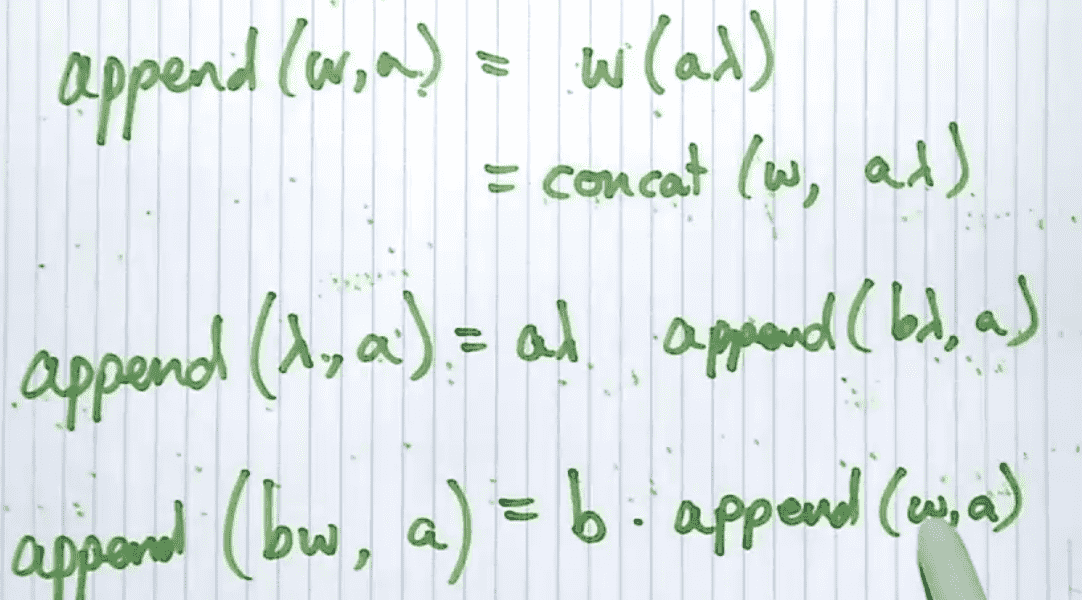 append (w, a) = w(aλ)
= concat (w, aλ)
append (λ, a) = aλ append (bλ, a)
append (bw, a) = b · append (w, a)